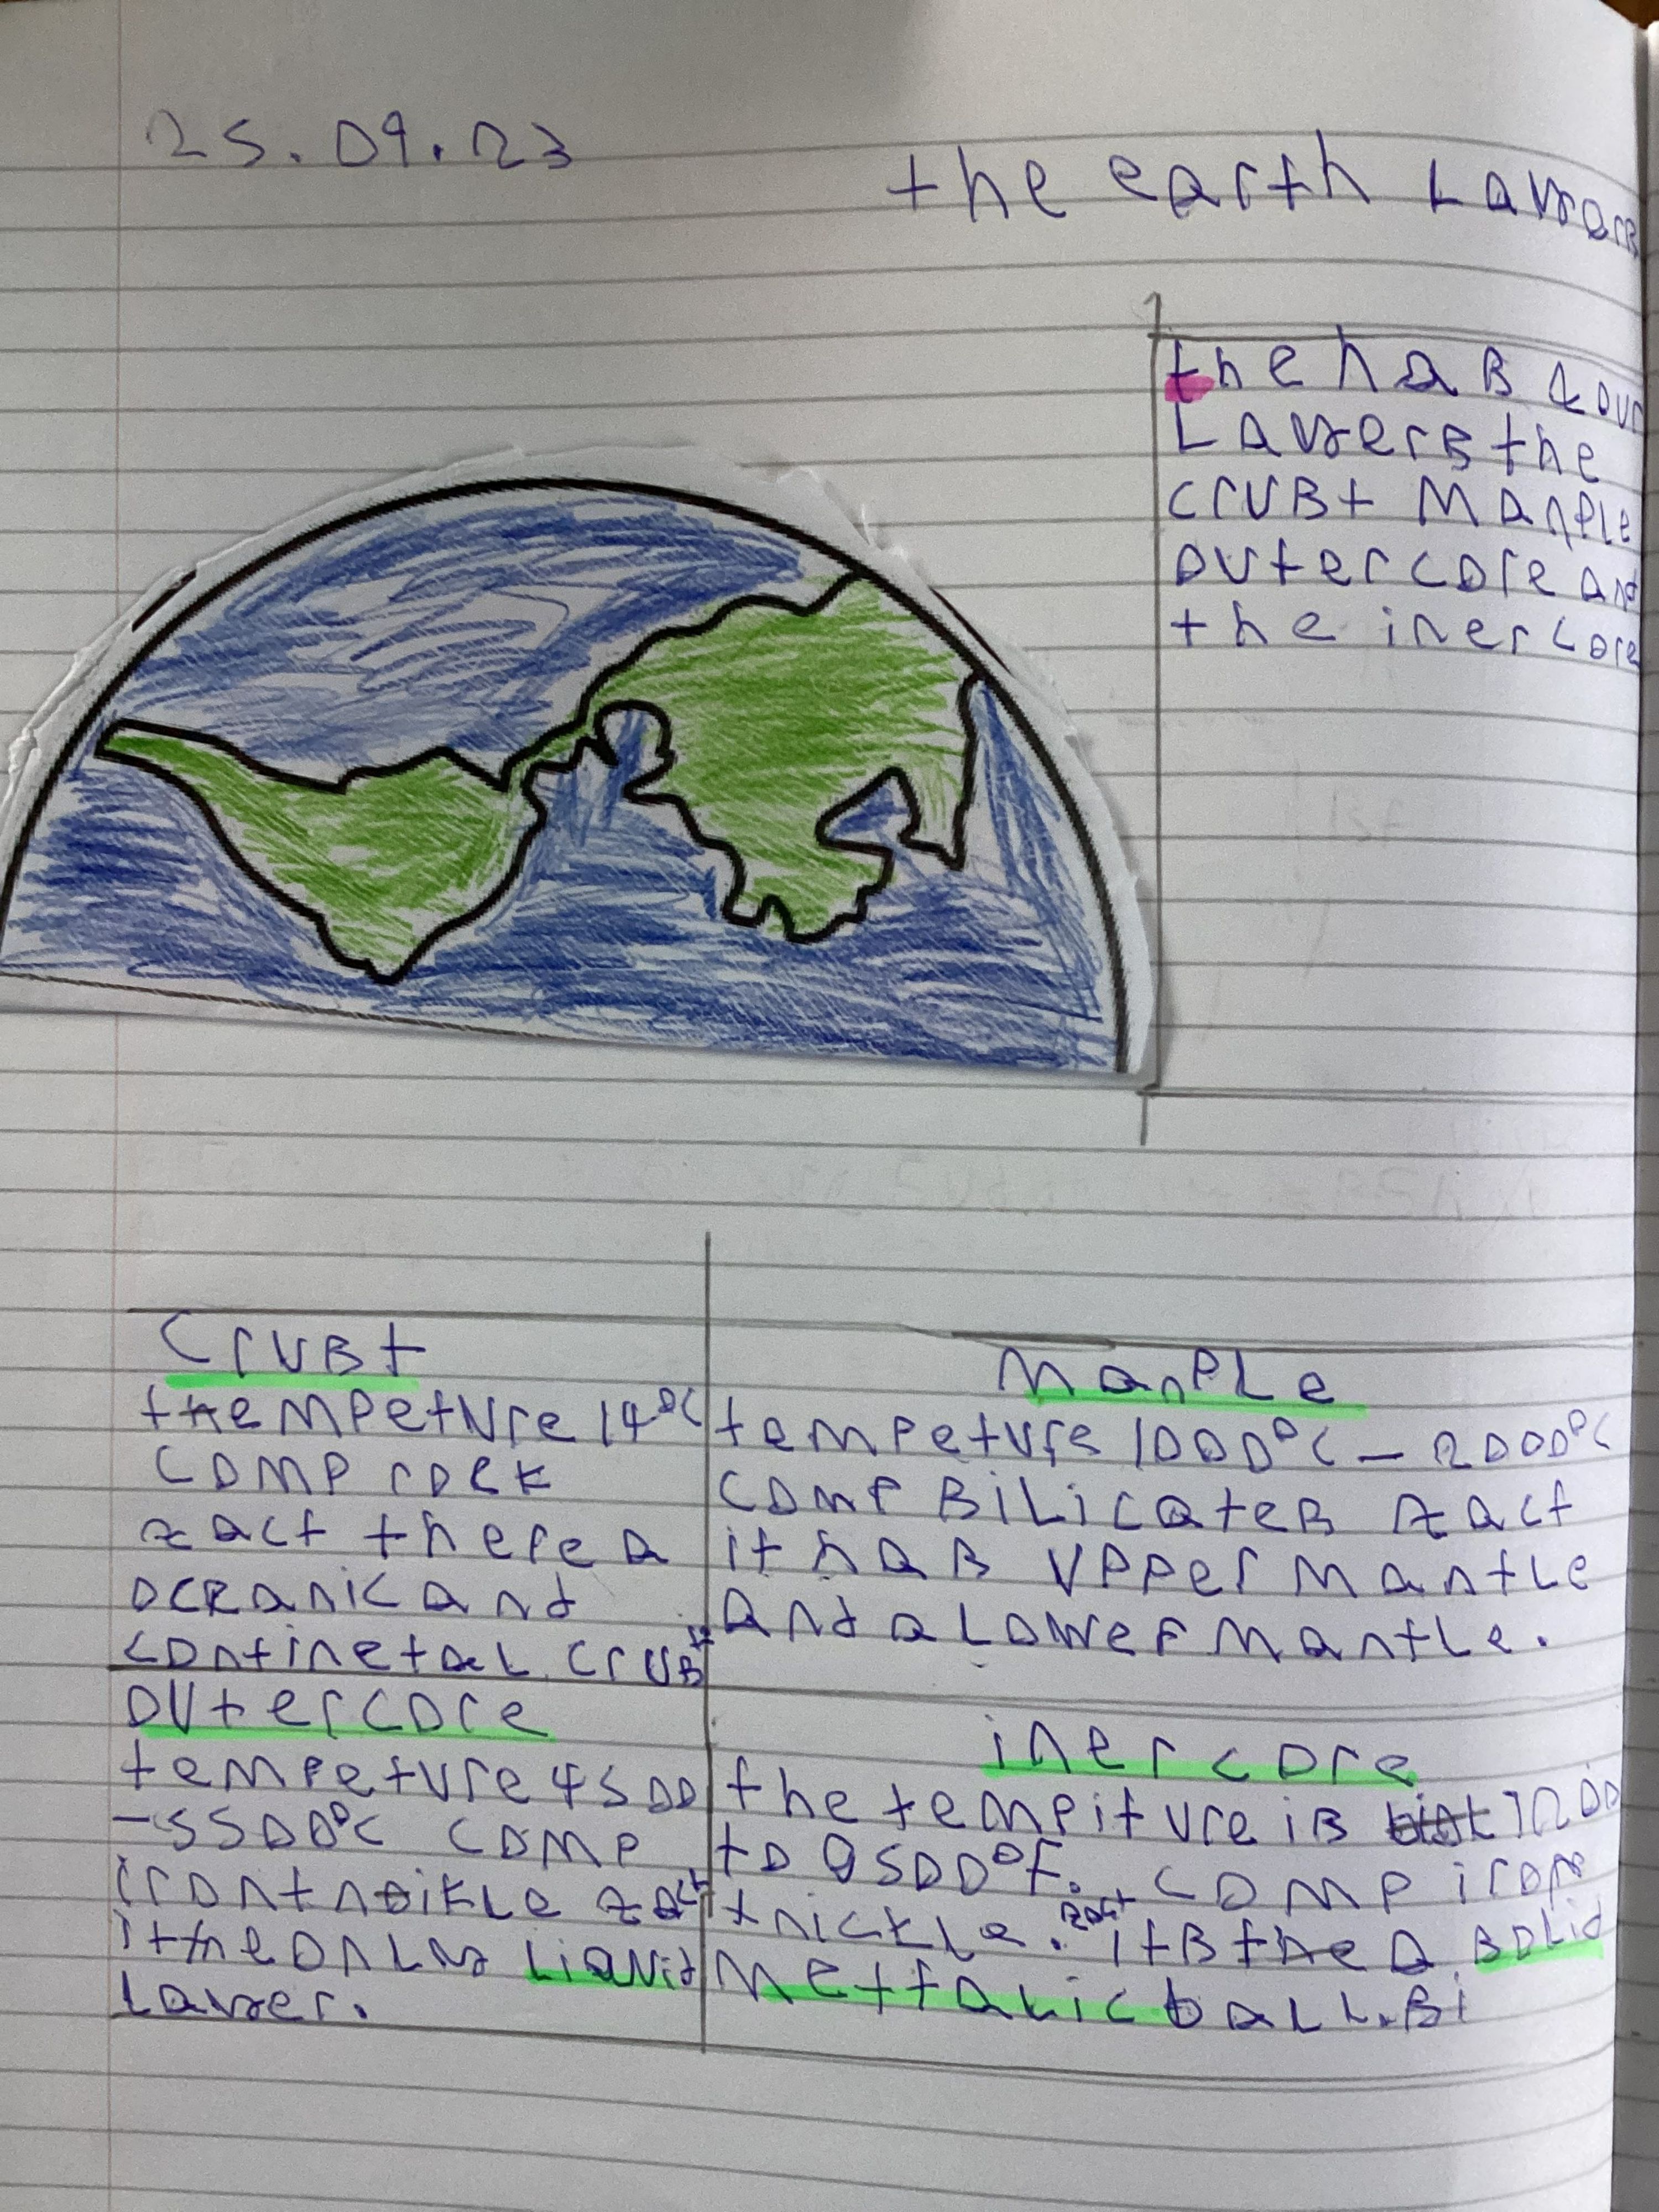 25.09.23
the earth Layers
the has four
Layers the
crust Manple
outer core and
the iner core
Crust
thempeture 14°C
comp rock
zact there a
oceanic and
continetal crust
Manple
tempeture 1000°C - 2000°C
comp silicates zact
it has upper mantle
and a Lower mantle.
outer core
tempeture 4500
-5500°C comp
iron + nikle zact
it the only Liquid
Layer.
iner core
the tempiture is
to 9500°F. comp iron
+ nickle. zact its the a solid
mettalic ball. Bi